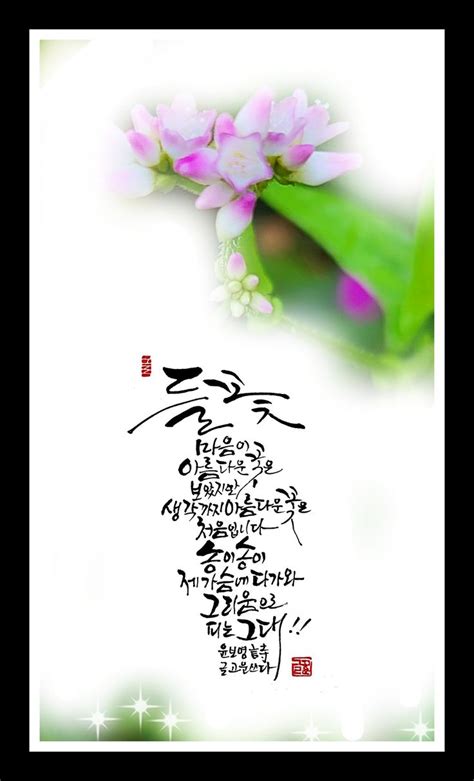 들꽃
마음이
아름다운 꽃은
보았지만
생각까지 아름다운 꽃은
처음입니다
송이송이
제 가슴에 다가와
그리움으로
피는 그대!!
윤보영 詩
글고운 쓰다